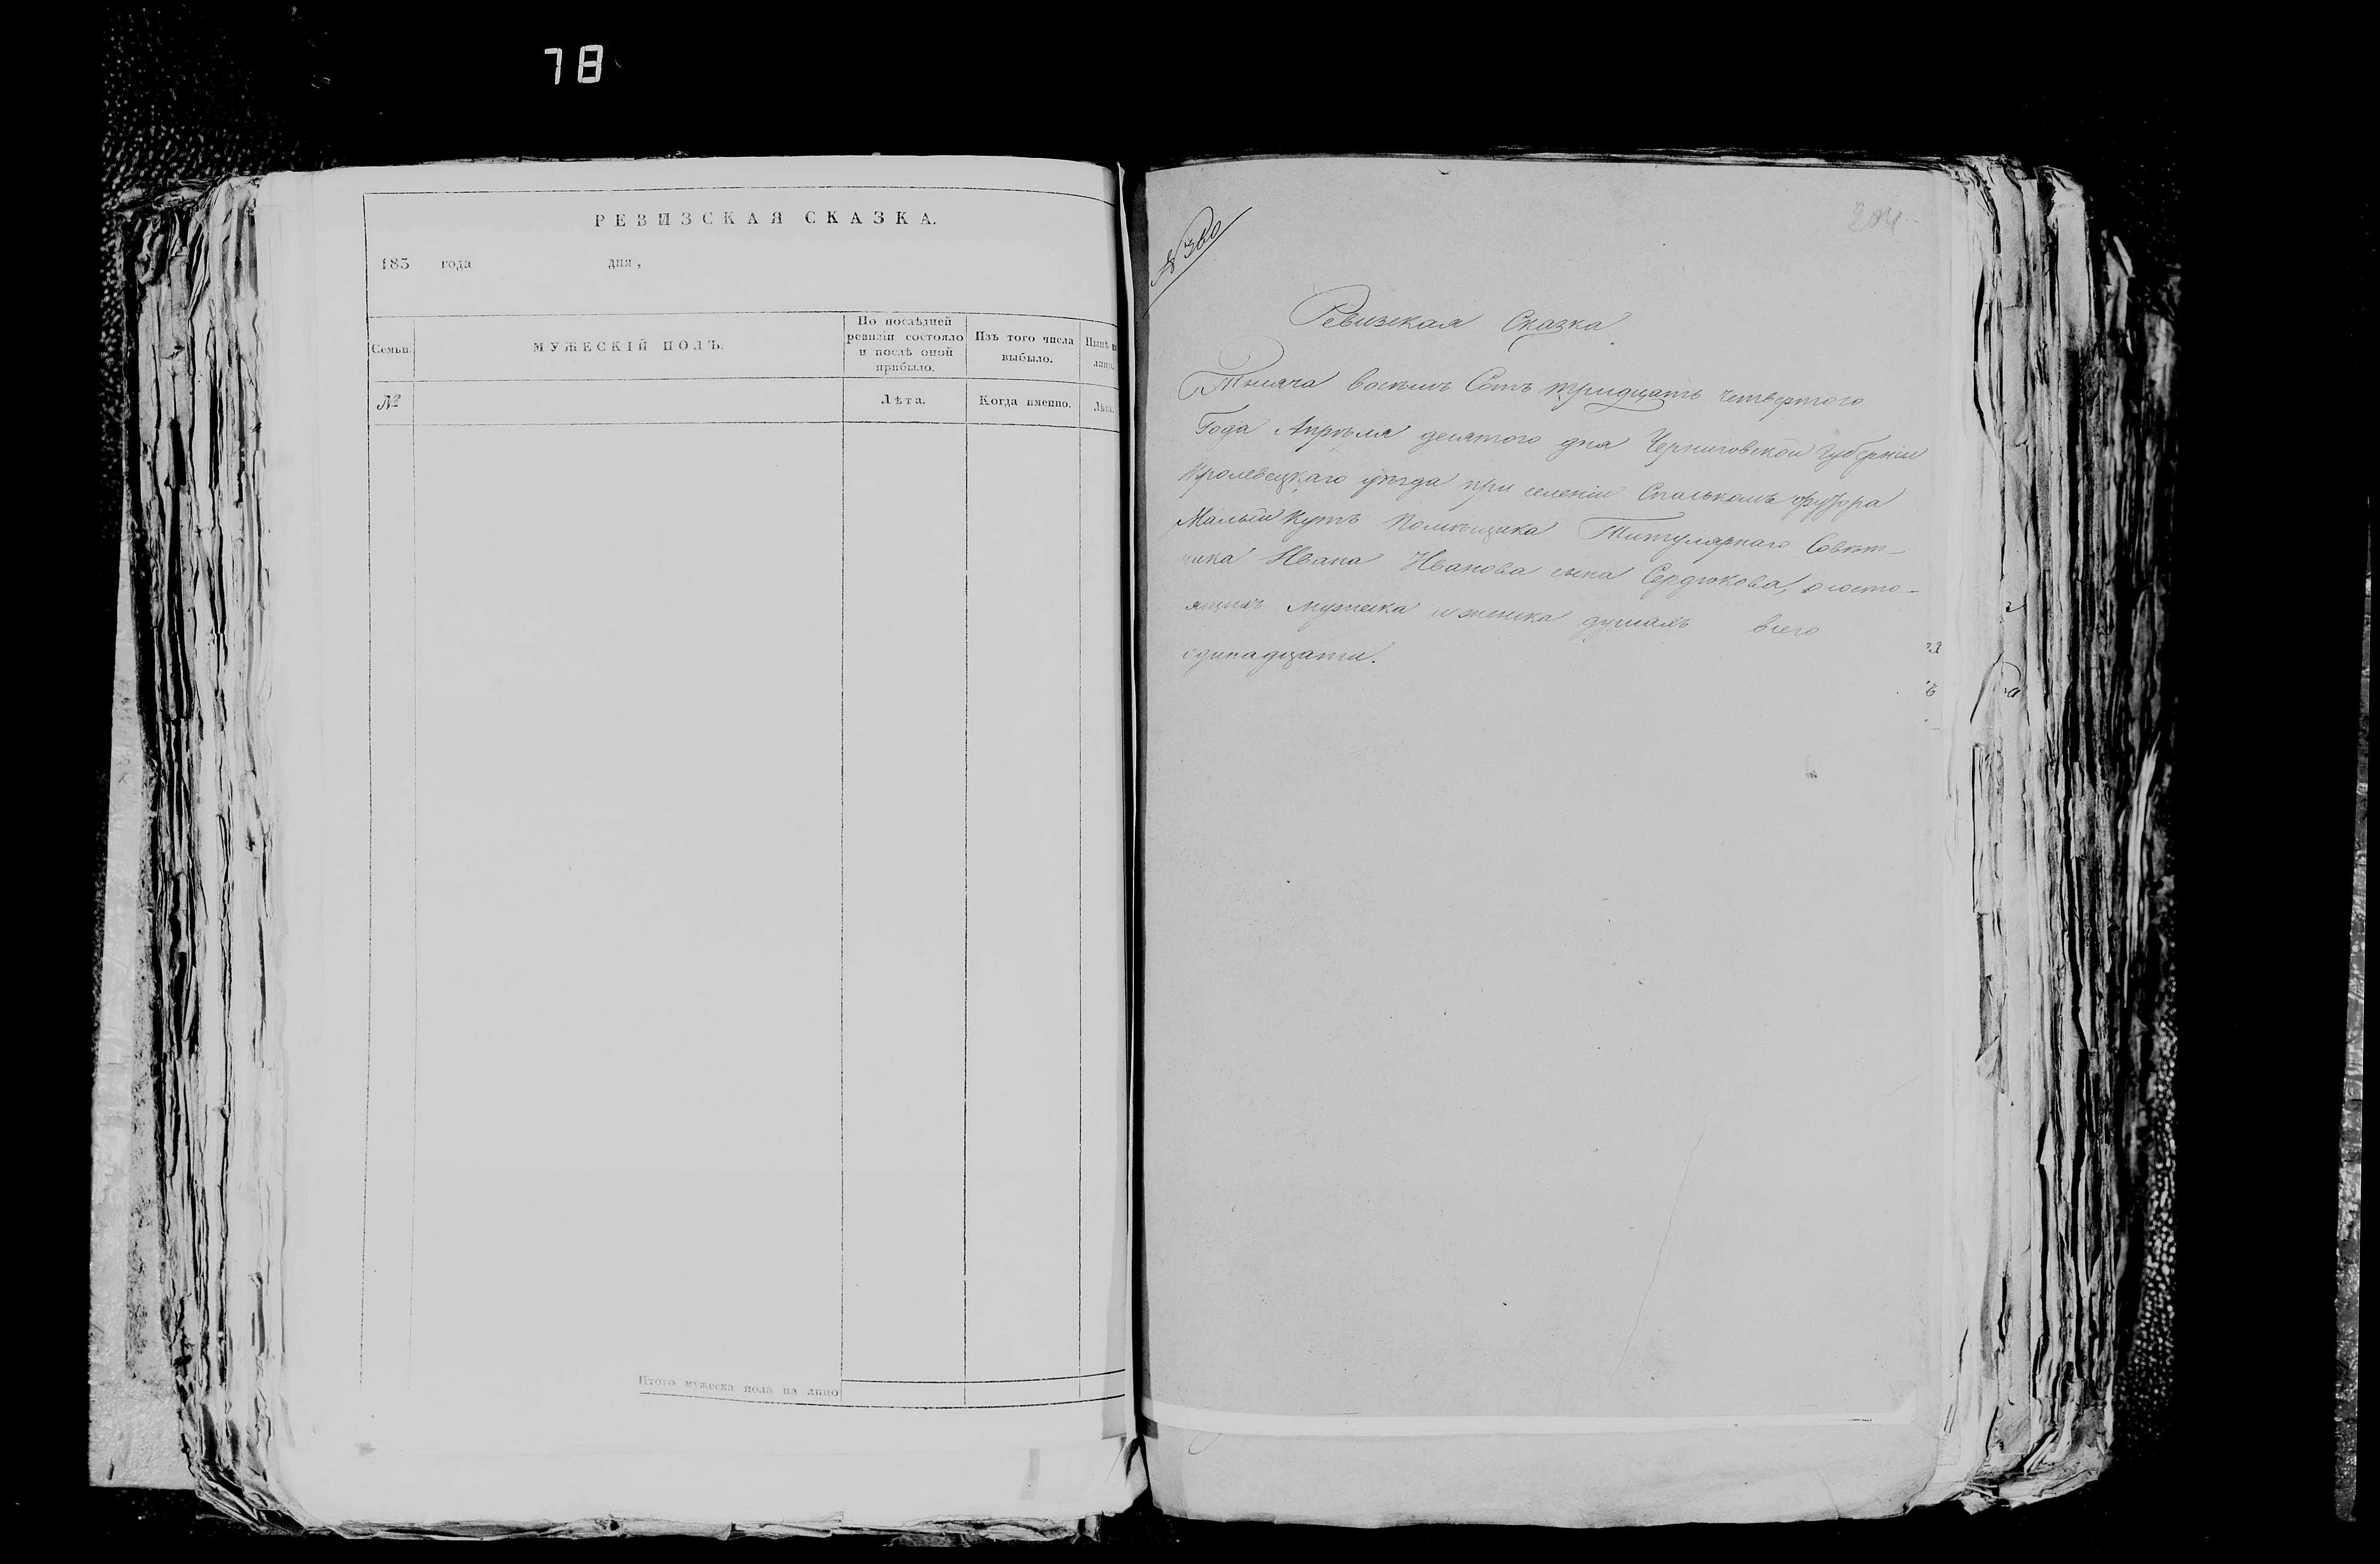 78
РЕВИЗСКАЯ СКАЗКА.
185 года дня,
Семьи.
МУЖЕСКІЙ ПОЛЪ.
По послѣдней
ревизіи состояло
и послѣ оной
прибыло.
Изъ того числа
выбыло.
Нынѣ
лицо.
№
Лѣта.
Когда именно.
Лѣта.
Итого мужеска пола на лицо
№ 300
204
Ревизская Сказка
Тысяча восемь Сотъ тридцать четвертого
Года Апрѣля десятого дня Черниговской Губерніи
Кролевецкаго уѣзда при селеніи Спаскомъ
Малый Кутъ Помѣщика Титулярнаго Совѣт-
ника Ивана Иванова сына Сердюкова, о состо-
ящихъ мужеска и женска душахъ всего
одинадцати.